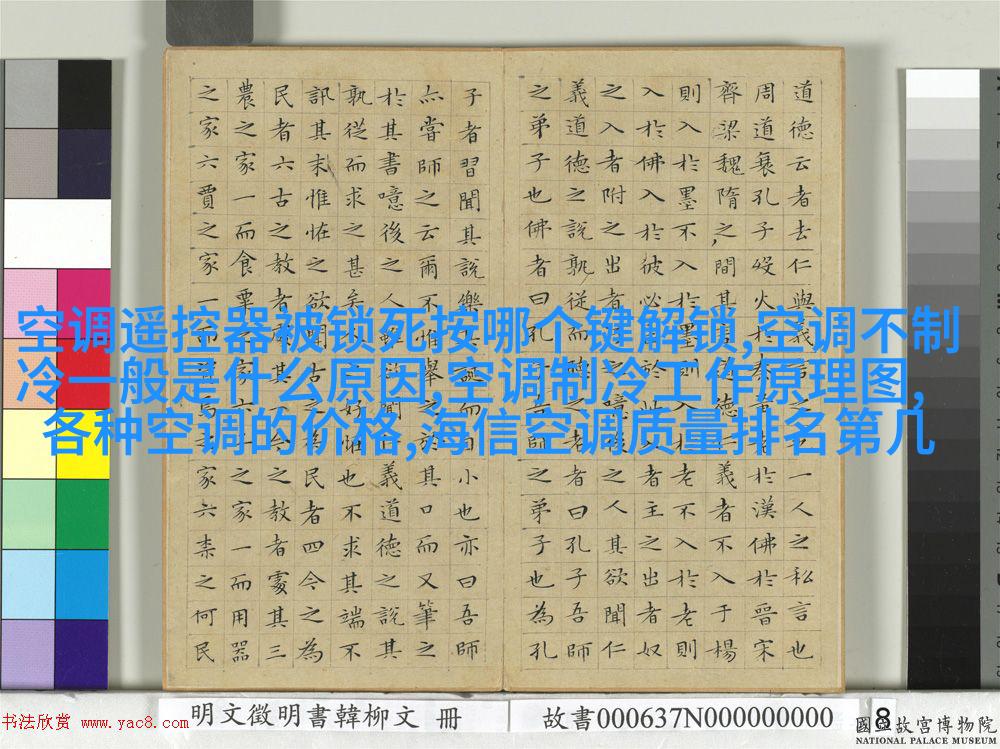 道德云者去仁與義言之也一人之私言也
周道衰孔子歿火於秦黃老於漢佛於晉宋
齊梁魏隋之間其言道德仁義者不入于楊
則入於墨不入於墨則入於老不入於老則
入於佛入於彼必出於此入者主之出者奴
之入者附之出者汙之噫後之人其欲聞仁
義道德之說孰從而聽之老者曰孔子吾師
之弟子也佛者曰孔子吾師之弟子也為孔
子者習聞其說樂其誕而自小也亦曰吾師
亦嘗師之云爾不惟舉之於其口而又筆之
於其書噫後之人雖欲聞仁義道德之說其
孰從而求之甚矣人之好怪也不求其端不
訊其末惟怪之欲聞古之為民者四今之為
民者六古之教者處其一今之教者處其三
農之家一而食粟之家六工之家一而用器
之家六賈之家一而資焉之家六柰之何民
空调遥控器被锁死按哪个键解锁,空调不制
冷一般是什么原因,空调制冷工作原理图,
各种空调的价格,海信空调质量排名第几
明文徵明書韓柳文 冊
故書000637N000000000
8
國立故宮博物院
NATIONAL PALACE MUSEUM
书法欣赏 www.yac8.com